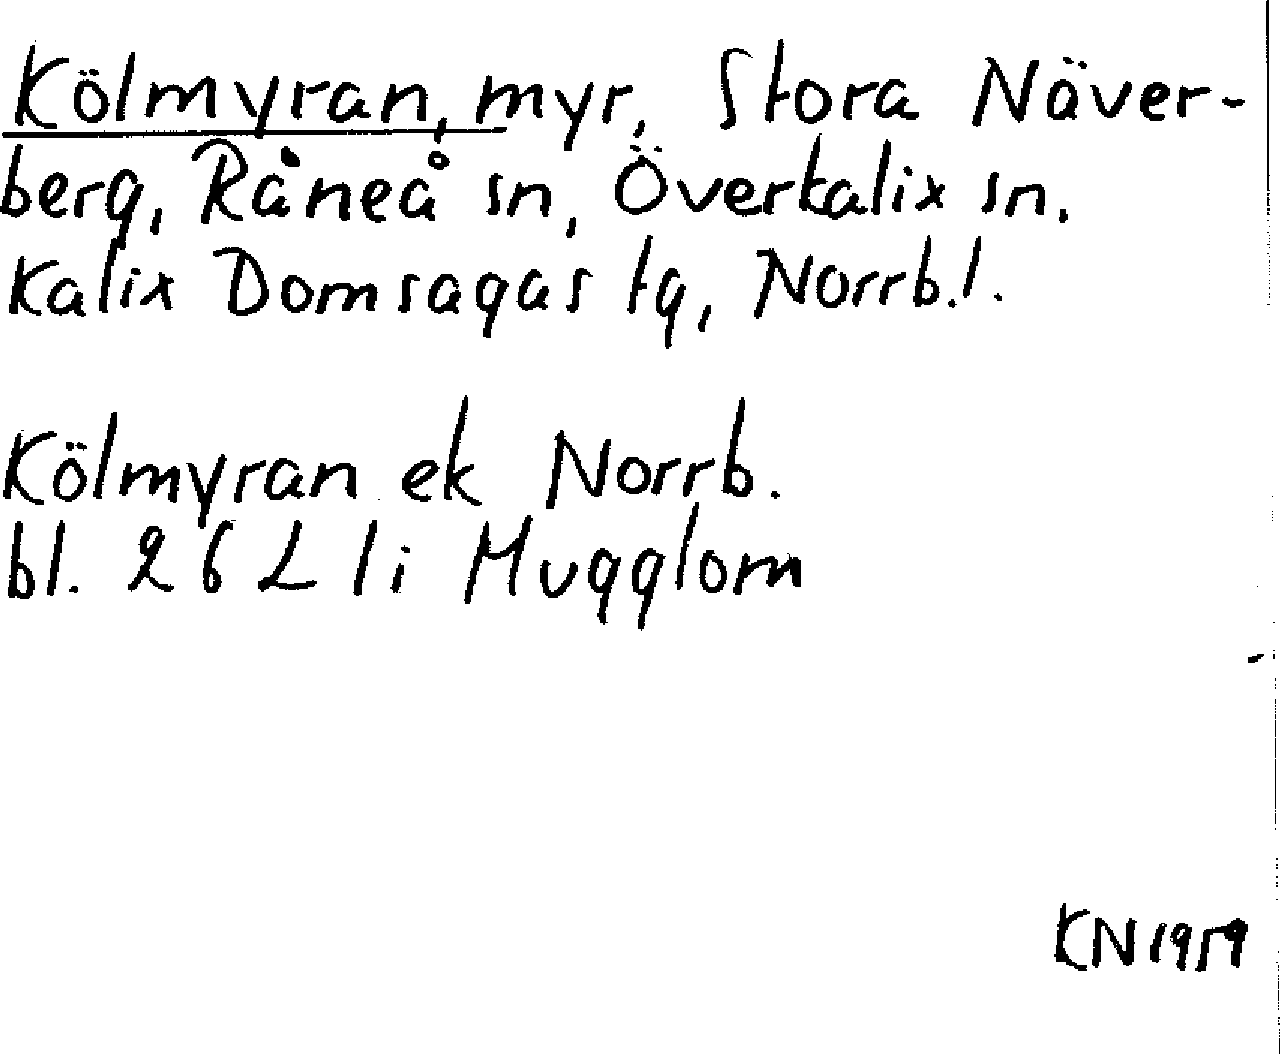 Kölmyran, myr, Stora Näver-
berg, Råneå sn, Överkalix sn.
Kalix Domsagas tg, Norrb.l.
Kölmyran ek Norrb.
bl. 26 L li Mugglom
KN 1959